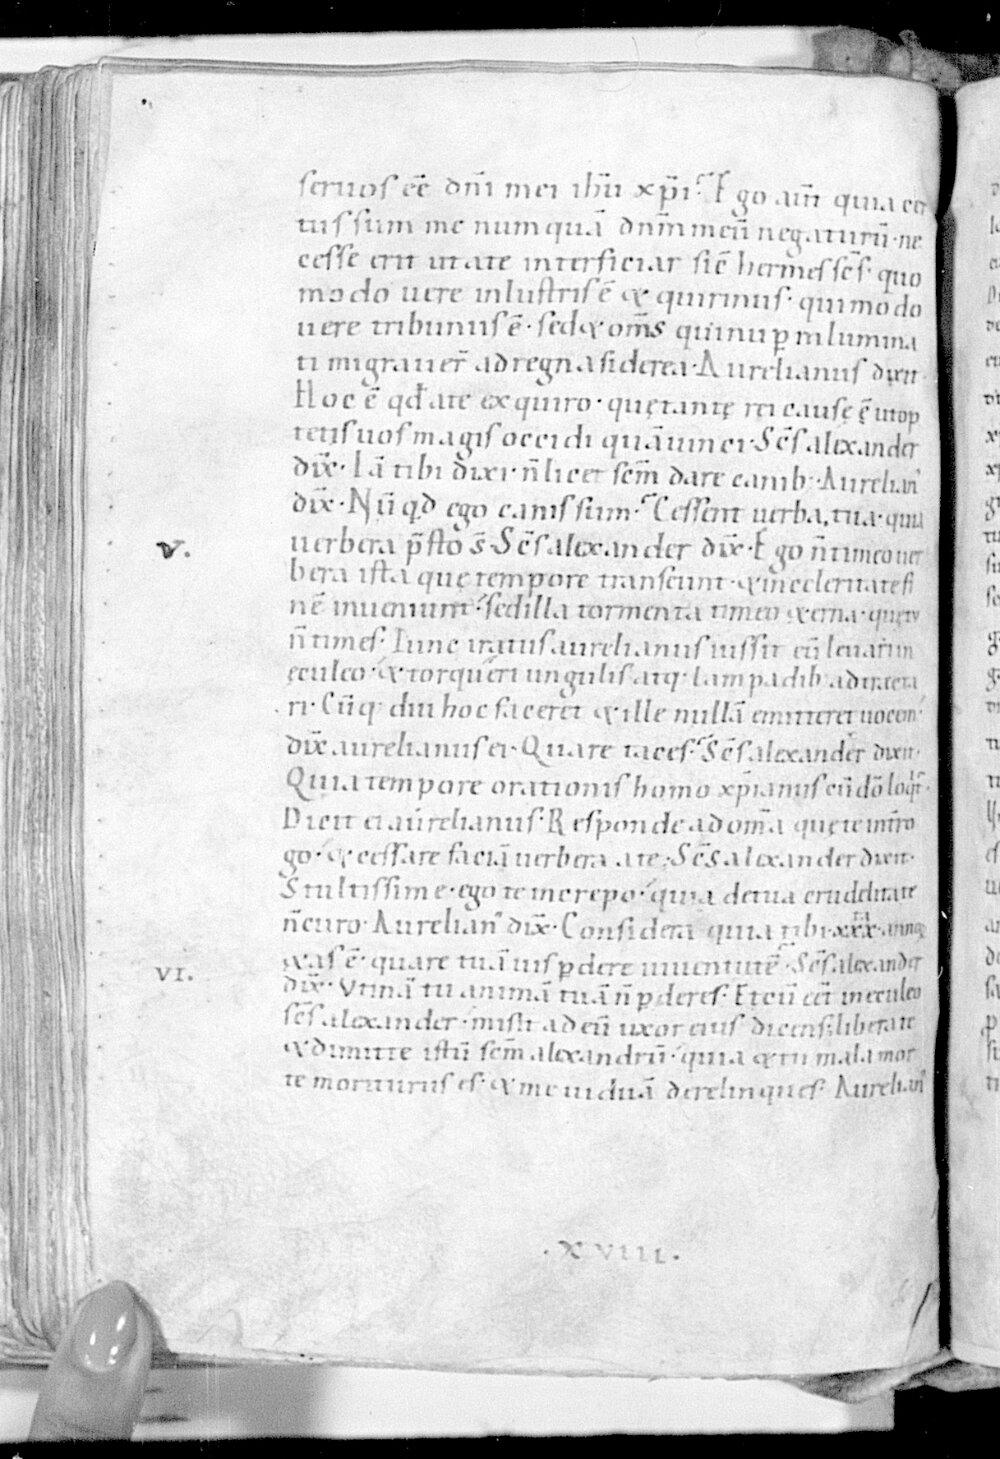 seruos eē dnī mei ihū xp̄i. Ego aūt quia cer
tus sum me numquā dnm̄ meū negaturū. ne
cesse erit ut a te interficiar sic̄ hermes sc̄s. quo
modo uere inlustris ē & quirinus. qui modo
uere tribunus ē. sed & om̄s qui nup̱ inlumina
ti migrauer̄ ad regna siderea. Aurelianus dixit.
Hoc ē qđ a te exquiro. quę tantę rei causę ē ut op
tetis uos magis occidi quā uinci. Sc̄s alexander
dix̄. Iā tibi dixi. n̄ licet scm̄ dare canib; Aurelian'
dix̄. Nūqd ego canis sum. Cessent uerba tua. quia
V.
uerbera p̄sto s̄. Sc̄s alexander dix̄. Ego n̄ timeo uer
bera ista quę tempore transeunt. & in celeritate fi
nē inueniunt. sed illa tormenta timeo ęterna. quę tu
n̄ times. Tunc iratus aurelianus iussit eū leuari in
eculeo. & torqueri ungulis atq. lampadib; adtracta
ri. Cūq. diu hoc faceret & ille nullā emitteret uocem.
dix̄ aurelianus ei. Quare taces. Sc̄s alexander dixit.
Quia tempore orationis homo xp̄ianus cū dō loqt̄.
Dicit ei aurelianus. Responde ad om̄a quę te int̄ro
go. & cessare faciā uerbera a te. Sc̄s alexander dixit.
Stultissime. ego te increpo. quia de tua crudelitate
n̄ curo. Aurelian' dix̄. Considera quia tibi .xxx. annoꝝ
&as ē. quare tuā uis p̱dere iuuentutē. Sc̄s alexander
VI.
dix̄. Utinā tu animā tuā n̄ p̱deres. Et cū eēt in eculeo
sc̄s alexander. misit ad eū uxor eius dicens. libera te
& dimitte istū scm̄ alexandrū. quia & tu mala mor
te moriturus es. & me uiduā derelinques. Aurelian'
.XVIII.